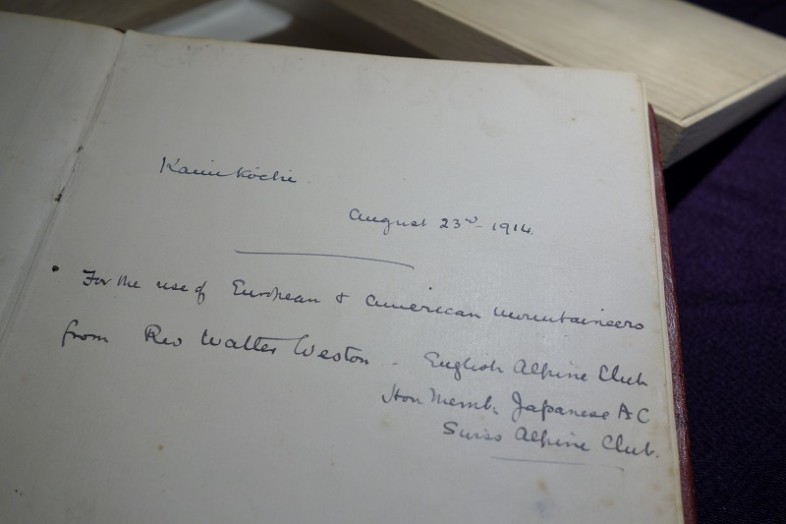 Kamikōchi.
August 23rd - 1914.
For the use of European & American mountaineers
from Rev Walter Weston - English Alpine Club
Hon Memb. Japanese A C
Swiss Alpine Club.